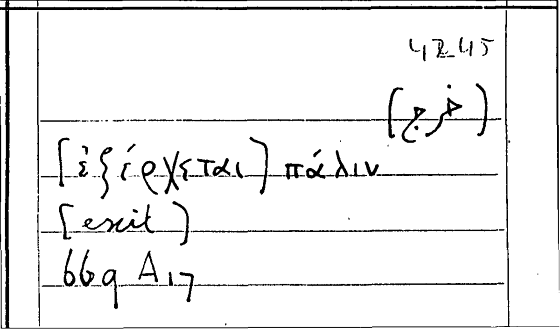 4245
(خرج)
[ἐξέρχεται] πάλιν
[exit]
669 A17